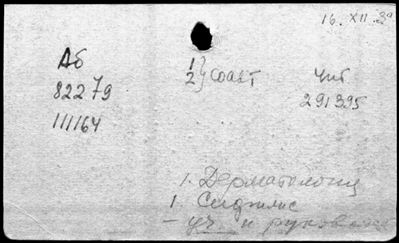 16. XII. 39
Аб
82279
111164
1
2} coast
Чит
291395
1. Дерматология
1. Сифилис
– уч. и руковод